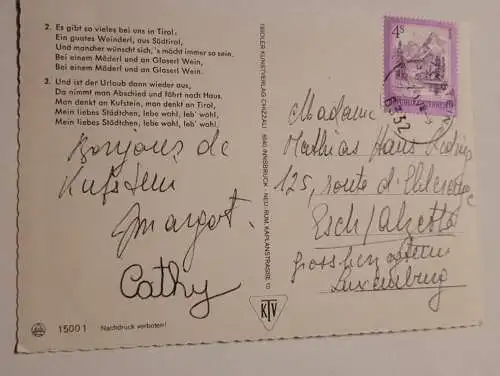 2. Es gibt so vieles bei uns in Tirol:
Ein guates Weinderl, aus Südtirol,
Und mancher wünscht sich, 's möcht immer so sein,
Bei einem Maderl und an Glaserl Wein,
Bei einem Maderl und an Glaserl Wein.
3. Und ist der Urlaub dann wieder aus,
Da nimmt man Abschied und fährt nach Haus.
Man denkt an Kufstein, man denkt an Tirol,
Mein liebes Städtchen, lebe wohl, leb' wohl,
Mein liebes Städtchen, lebe wohl, leb' wohl.
Bonjour de
Kufstein
Margot.
Cathy
15001 Nachdruck verboten!
TIROLER KUNSTVERLAG CHIZZALI · 6040 INNSBRUCK - NEU-RUM, KAPLANSTRASSE 10
KTV
4S
6332
Madame
Mathias Hans
125, route d
Esch/Alzette
Luxemburg